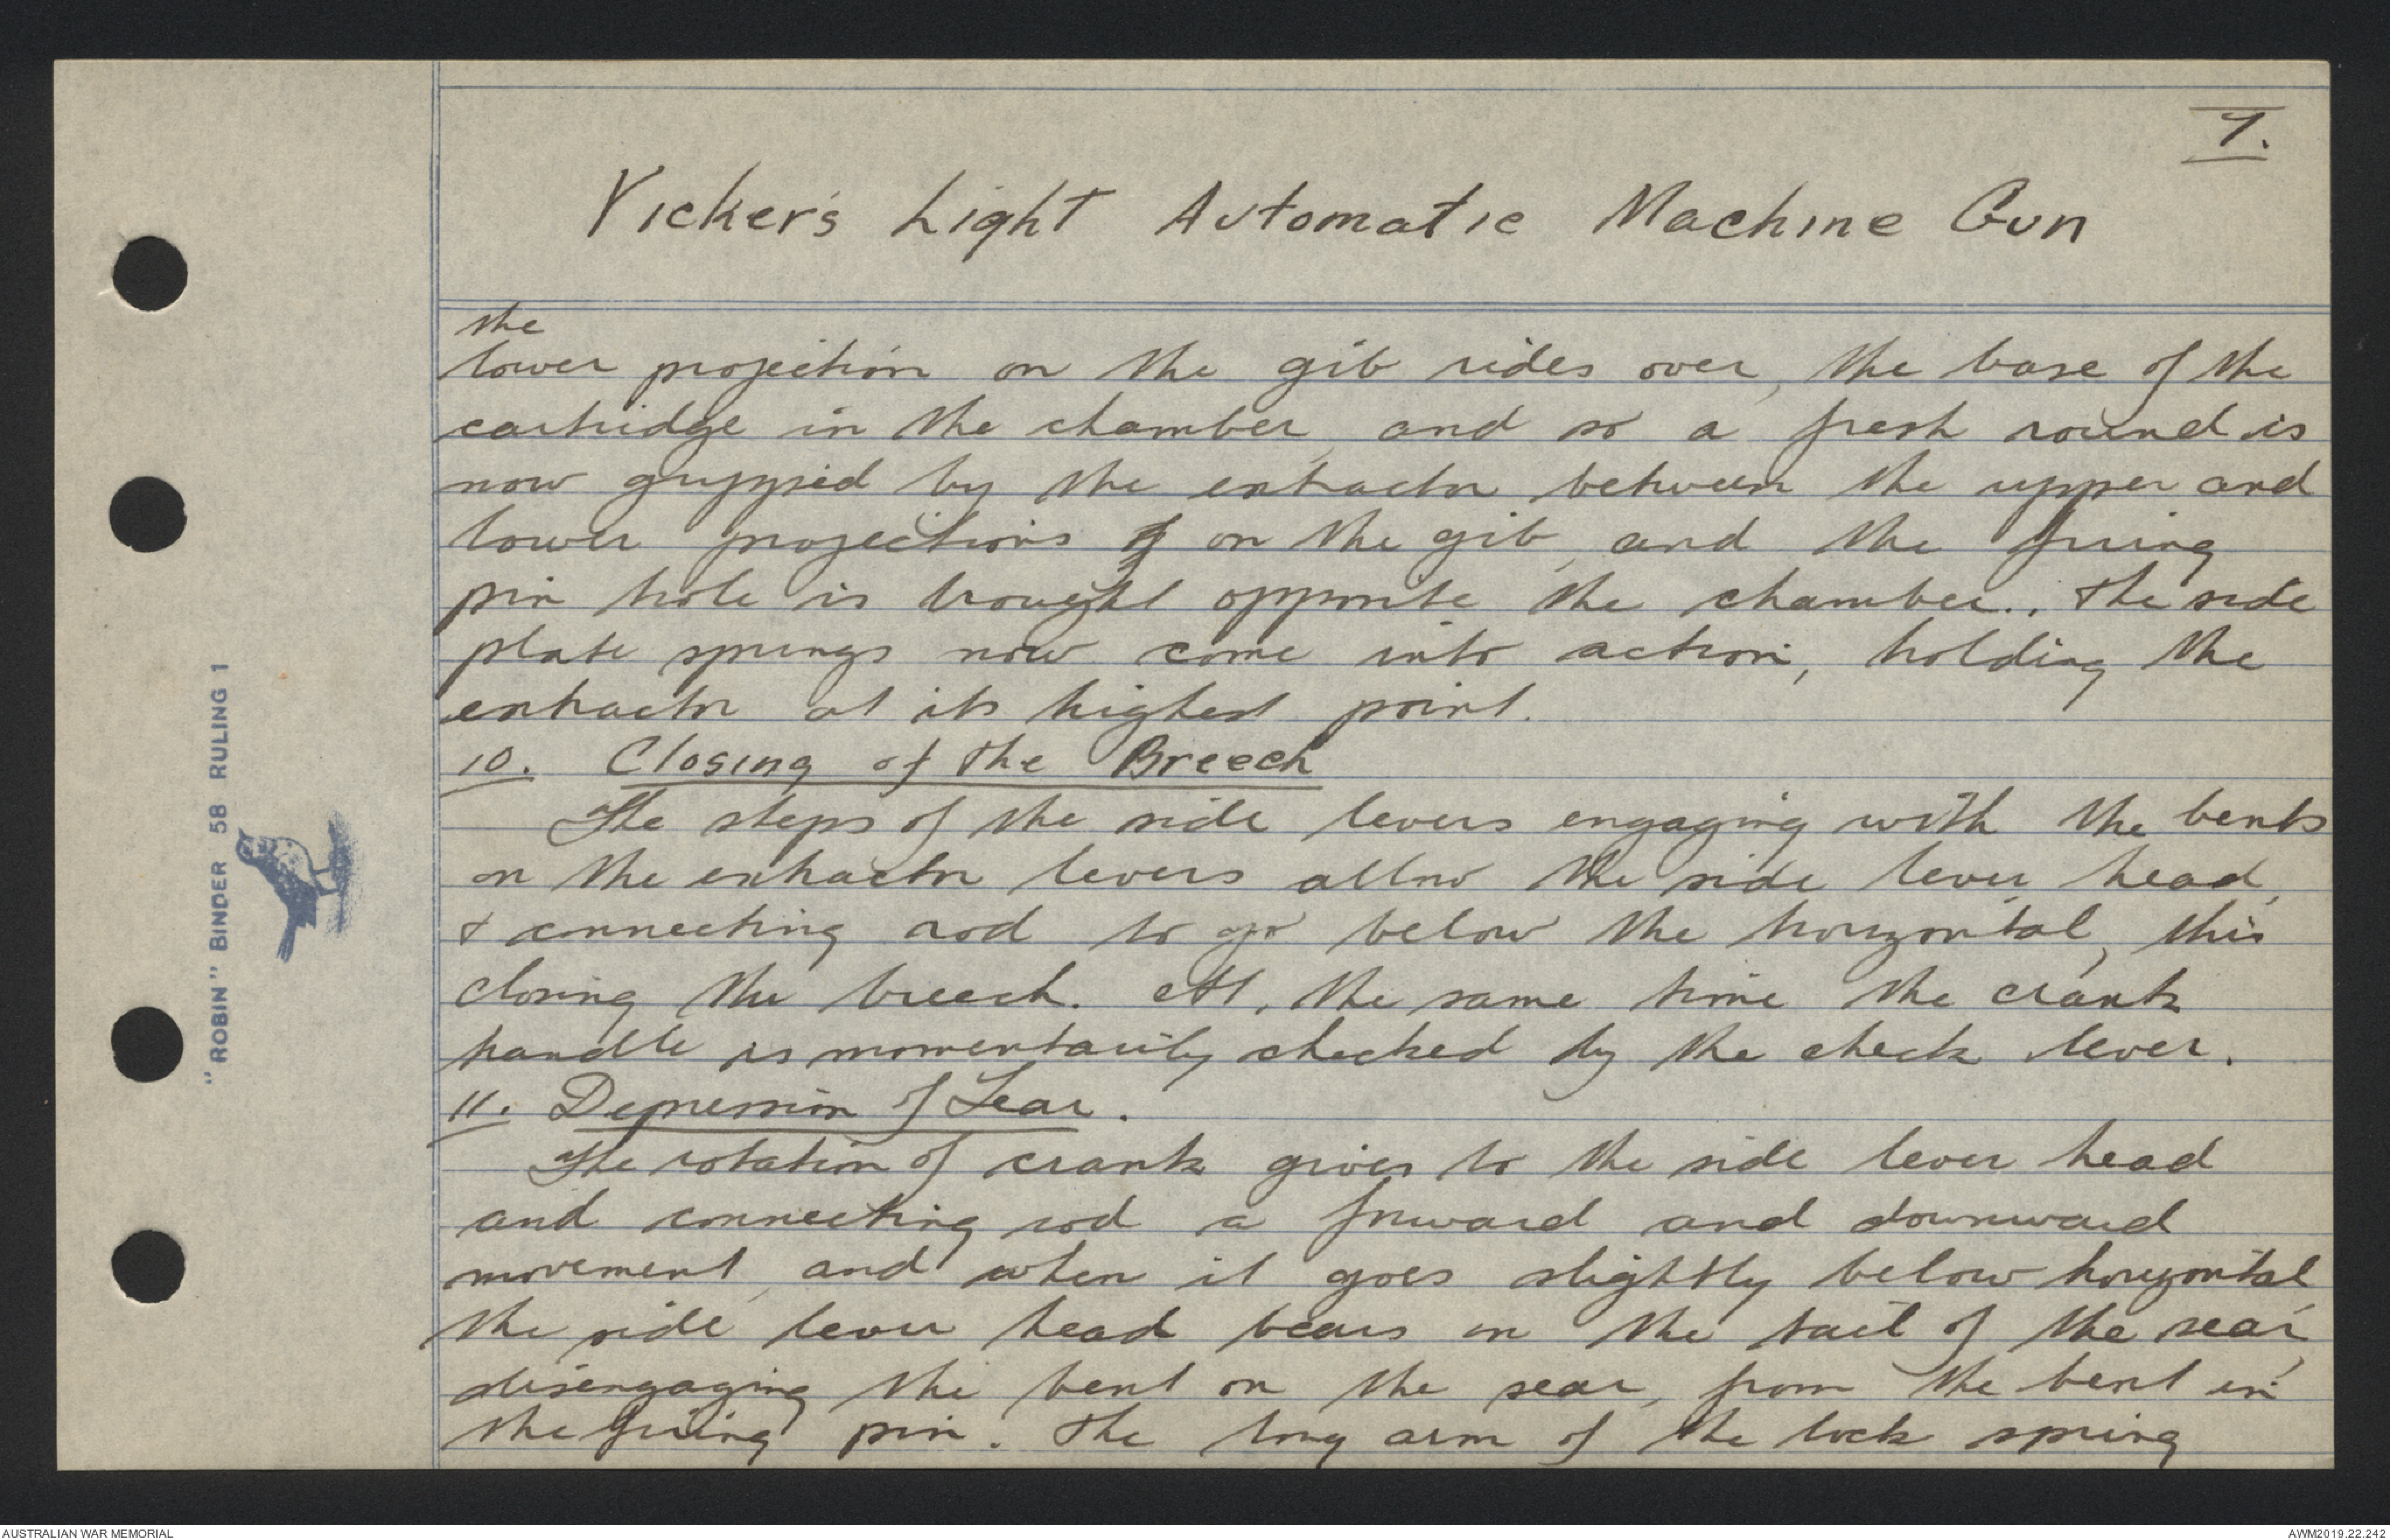 7.
Vicker's Light Automatic Machine Gun
the
lower projection on the gib rides over, the base of the
cartridge in the chamber, and so a fresh round is
now gripped by the extractor between the upper and
lower projections on the gib, and the firing
pin hole is brought opposite the chamber. The side
plate springs now come into action, holding the
extractor at its highest point.
10. Closing of the Breech
The steps of the side levers engaging with the bents
on the extractor levers allow the side lever head,
& connecting rod to go below the horizontal, this
closing the breech. At, the same time the crank
handle is momentarily checked by the check lever.
11. Depression of Sear.
The rotation of crank gives to the side lever head
and connecting rod a forward and downward
movement, and when it goes slightly below horizontal,
the side lever head bears on the tail of the sear,
disengaging the bent on the sear, from the bent in
the firing pin. The long arm of the lock spring
"ROBIN" BINDER 58 RULING 1
AUSTRALIAN WAR MEMORIAL
AWM2019.22.242